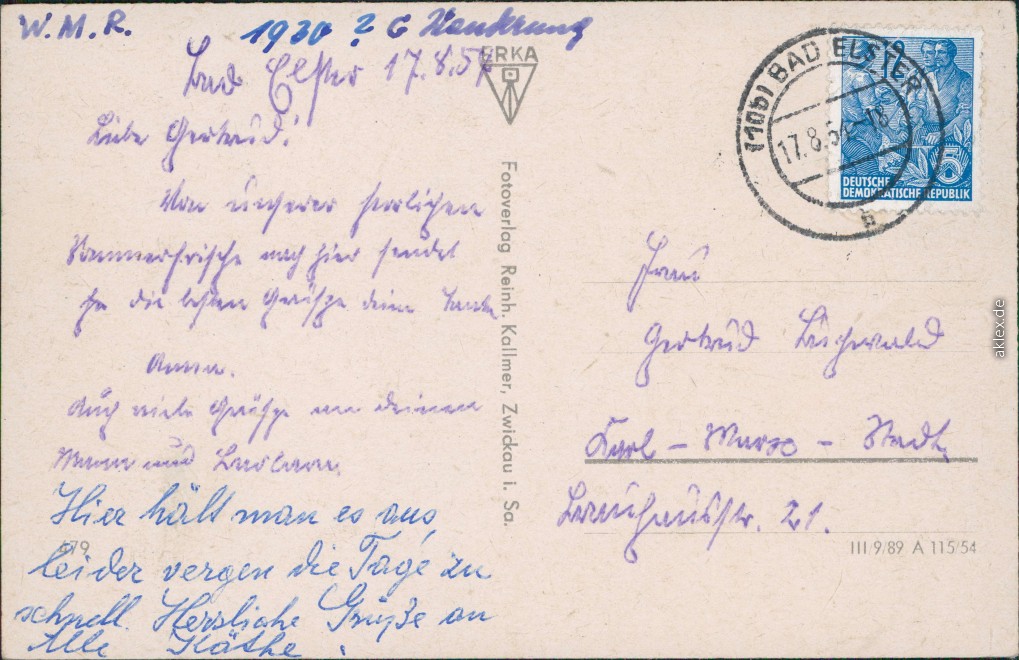 W. M. R.
1930 ? G
Bad Elster 17.8.54
Liebe Gertrud!
Von unserer herrlichen
Sommerfrische nach hier sendet
die besten Grüße deine Tante
Anna.
Auch viele Grüße an deinen
Mann und Barbara.
Hier hält man es aus,
leider vergen die Tage zu
schnell. Herzliche Grüße an
Alle Käthe.
479
ERKA
Fotoverlag Reinh. Kallmer, Zwickau i. Sa.
(10b) BAD ELSTER
17.8.54-18
h
DEUTSCHE
DEMOKRATISCHE REPUBLIK
5
Frau
Gertrud
Karl - Marx - Stadt
Brauhausstr. 21.
III/9/89 A 115/54
aklex.de